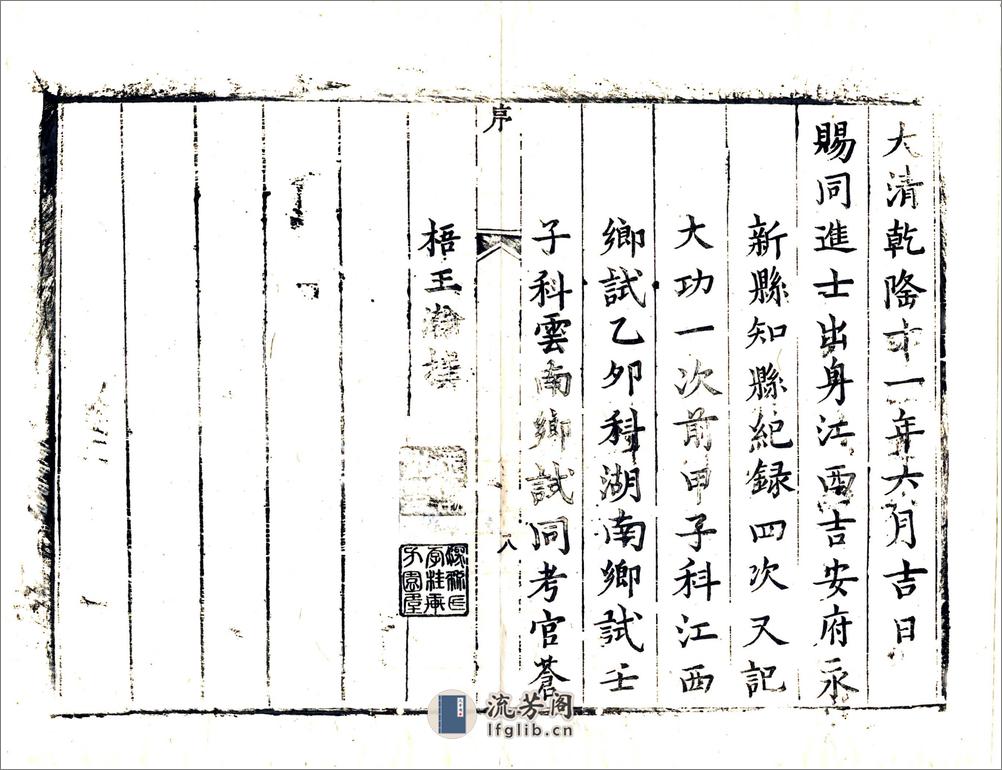 大清乾隆十一年六月吉日
賜同進士出身江西吉安府永
新縣知縣紀録四次又記
大功一次前甲子科江西
鄉試乙夘科湖南鄉試壬
子科雲南鄉試同考官蒼
序
八
梧王瀚撰
流芳阁
lfglib.cn